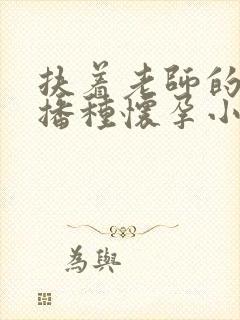 扶着老師的
播種懷孕小
為與